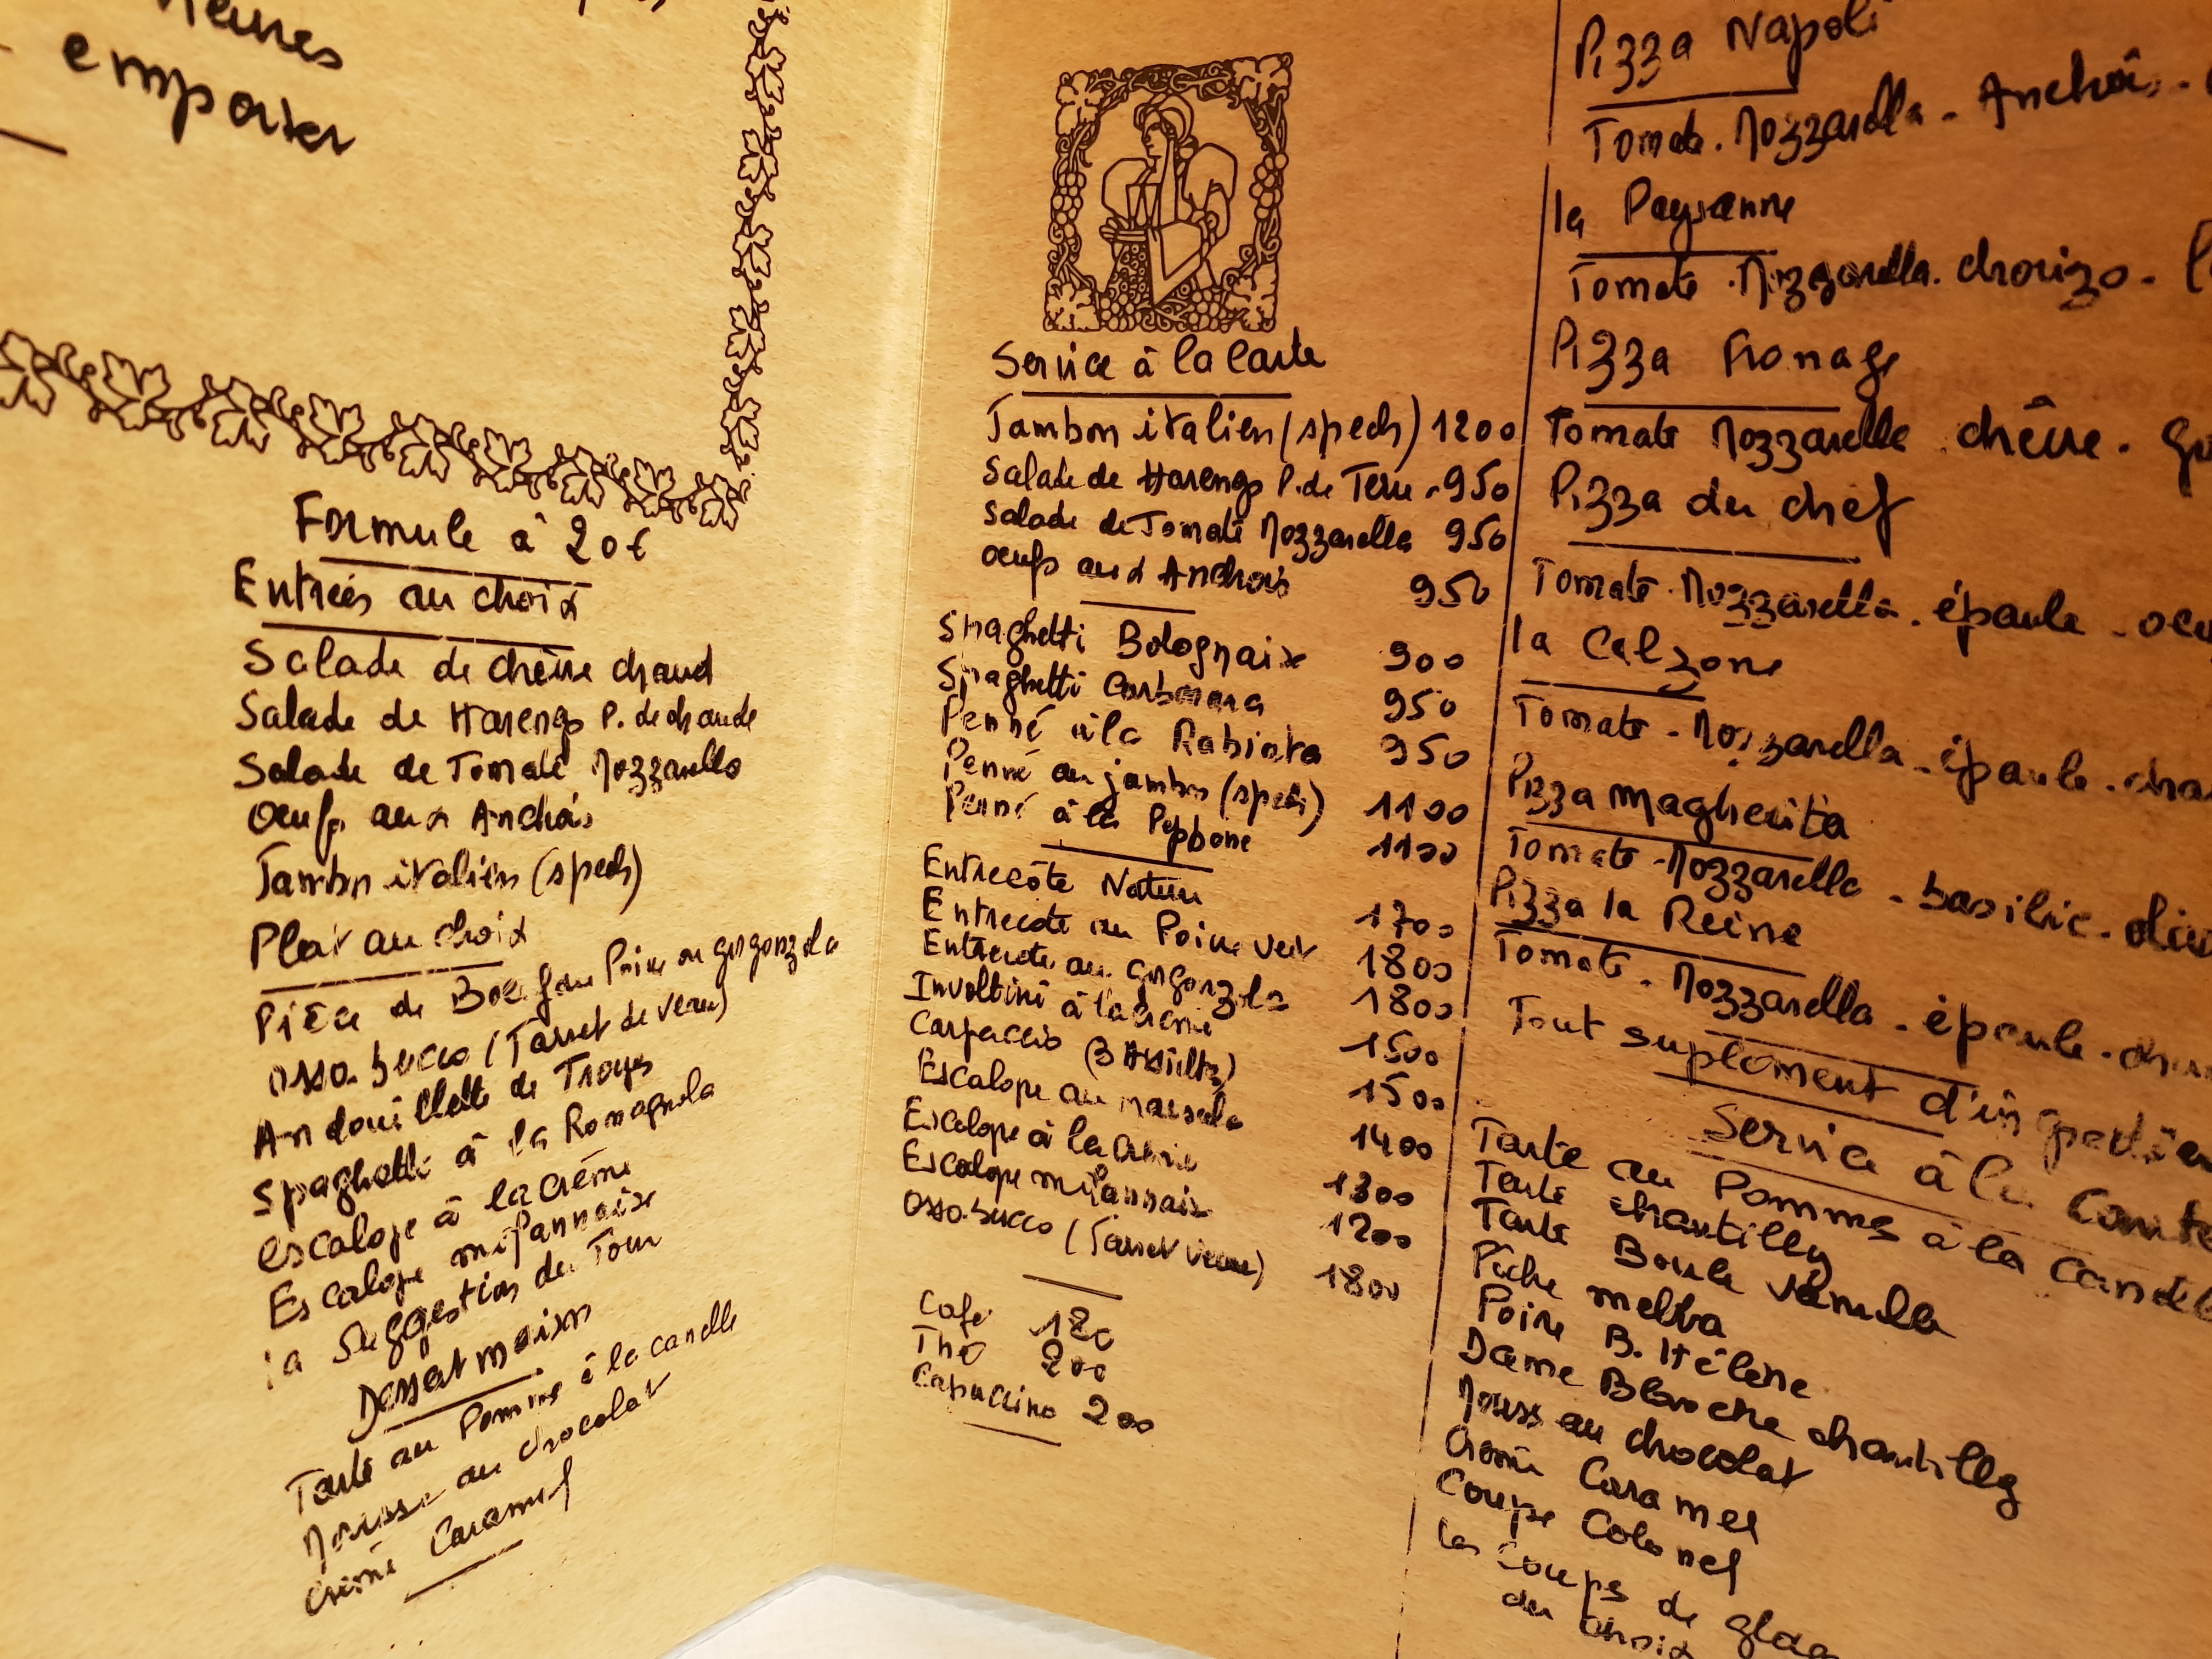 emporter
Formule à 20€
Entrées au choix
Salade de chèvre chaud
Salade de Harengs P. de chaude
Salade de Tomate Mozzarella
Oeufs aux Anchois
Jambon italien (spech)
Plat au choix
Pièce de Boeuf au Poivre ou gorgonzola
Osso. bucco (Jarret de veau)
Andouillette de Troyes
Spaghetti à la Romagnola
escalope à la crème
Escalope milannaise
la Suggestion du Jour
Dessert maison
Tarte au Pomme à la canelle
Mousse au chocolat
Crème Caramel
Service à la Carte
Jambon italien (spech) 1200
Salade de Harengs P. de Terre 950
Salade de Tomate Mozzarella 950
oeufs aux Anchois 950
Spaghetti Bolognaise 900
Spaghetti Carbonara 950
Penné à la Rabiata 950
Penné au jambon (spech) 1100
Penné à la Peppone 1100
Entrecôte Nature 1700
Entrecote au Poivre vert 1800
Entrecote au gorgonzola 1800
Involtini à la crème 1500
Carpaccio (3 Assiettes) 1500
Escalope au marsala 1400
Escalope à la Crème 1300
Escalope milannaise 1200
Osso. bucco (Jarret veau) 1800
Café 180
Thé 200
Capuccino 200
Pizza Napoli
Tomate. Mozzarella - Anchois -
la Paysanne
Tomate. Mozzarella. chorizo -
Pizza Fromage
Tomate Mozzarelle chèvre.
Pizza du chef
Tomate. Mozzarella. épaule -
la Calzone
Tomate - Mozzarella - épaule -
Pizza Magherita
Tomate - Mozzarella - basilic -
Pizza la Reine
Tomate. Mozzarella - épaule -
Tout suplément
Service à la Carte
Tarte au Pomme à la
Tarte chantilly
Tarte Boule vanille
Pêche melba
Poire B. Hélène
Dame Blanche chantilly
Mouss au chocolat
Crème Caramel
Coupe Colonel
les Coups de
au choix